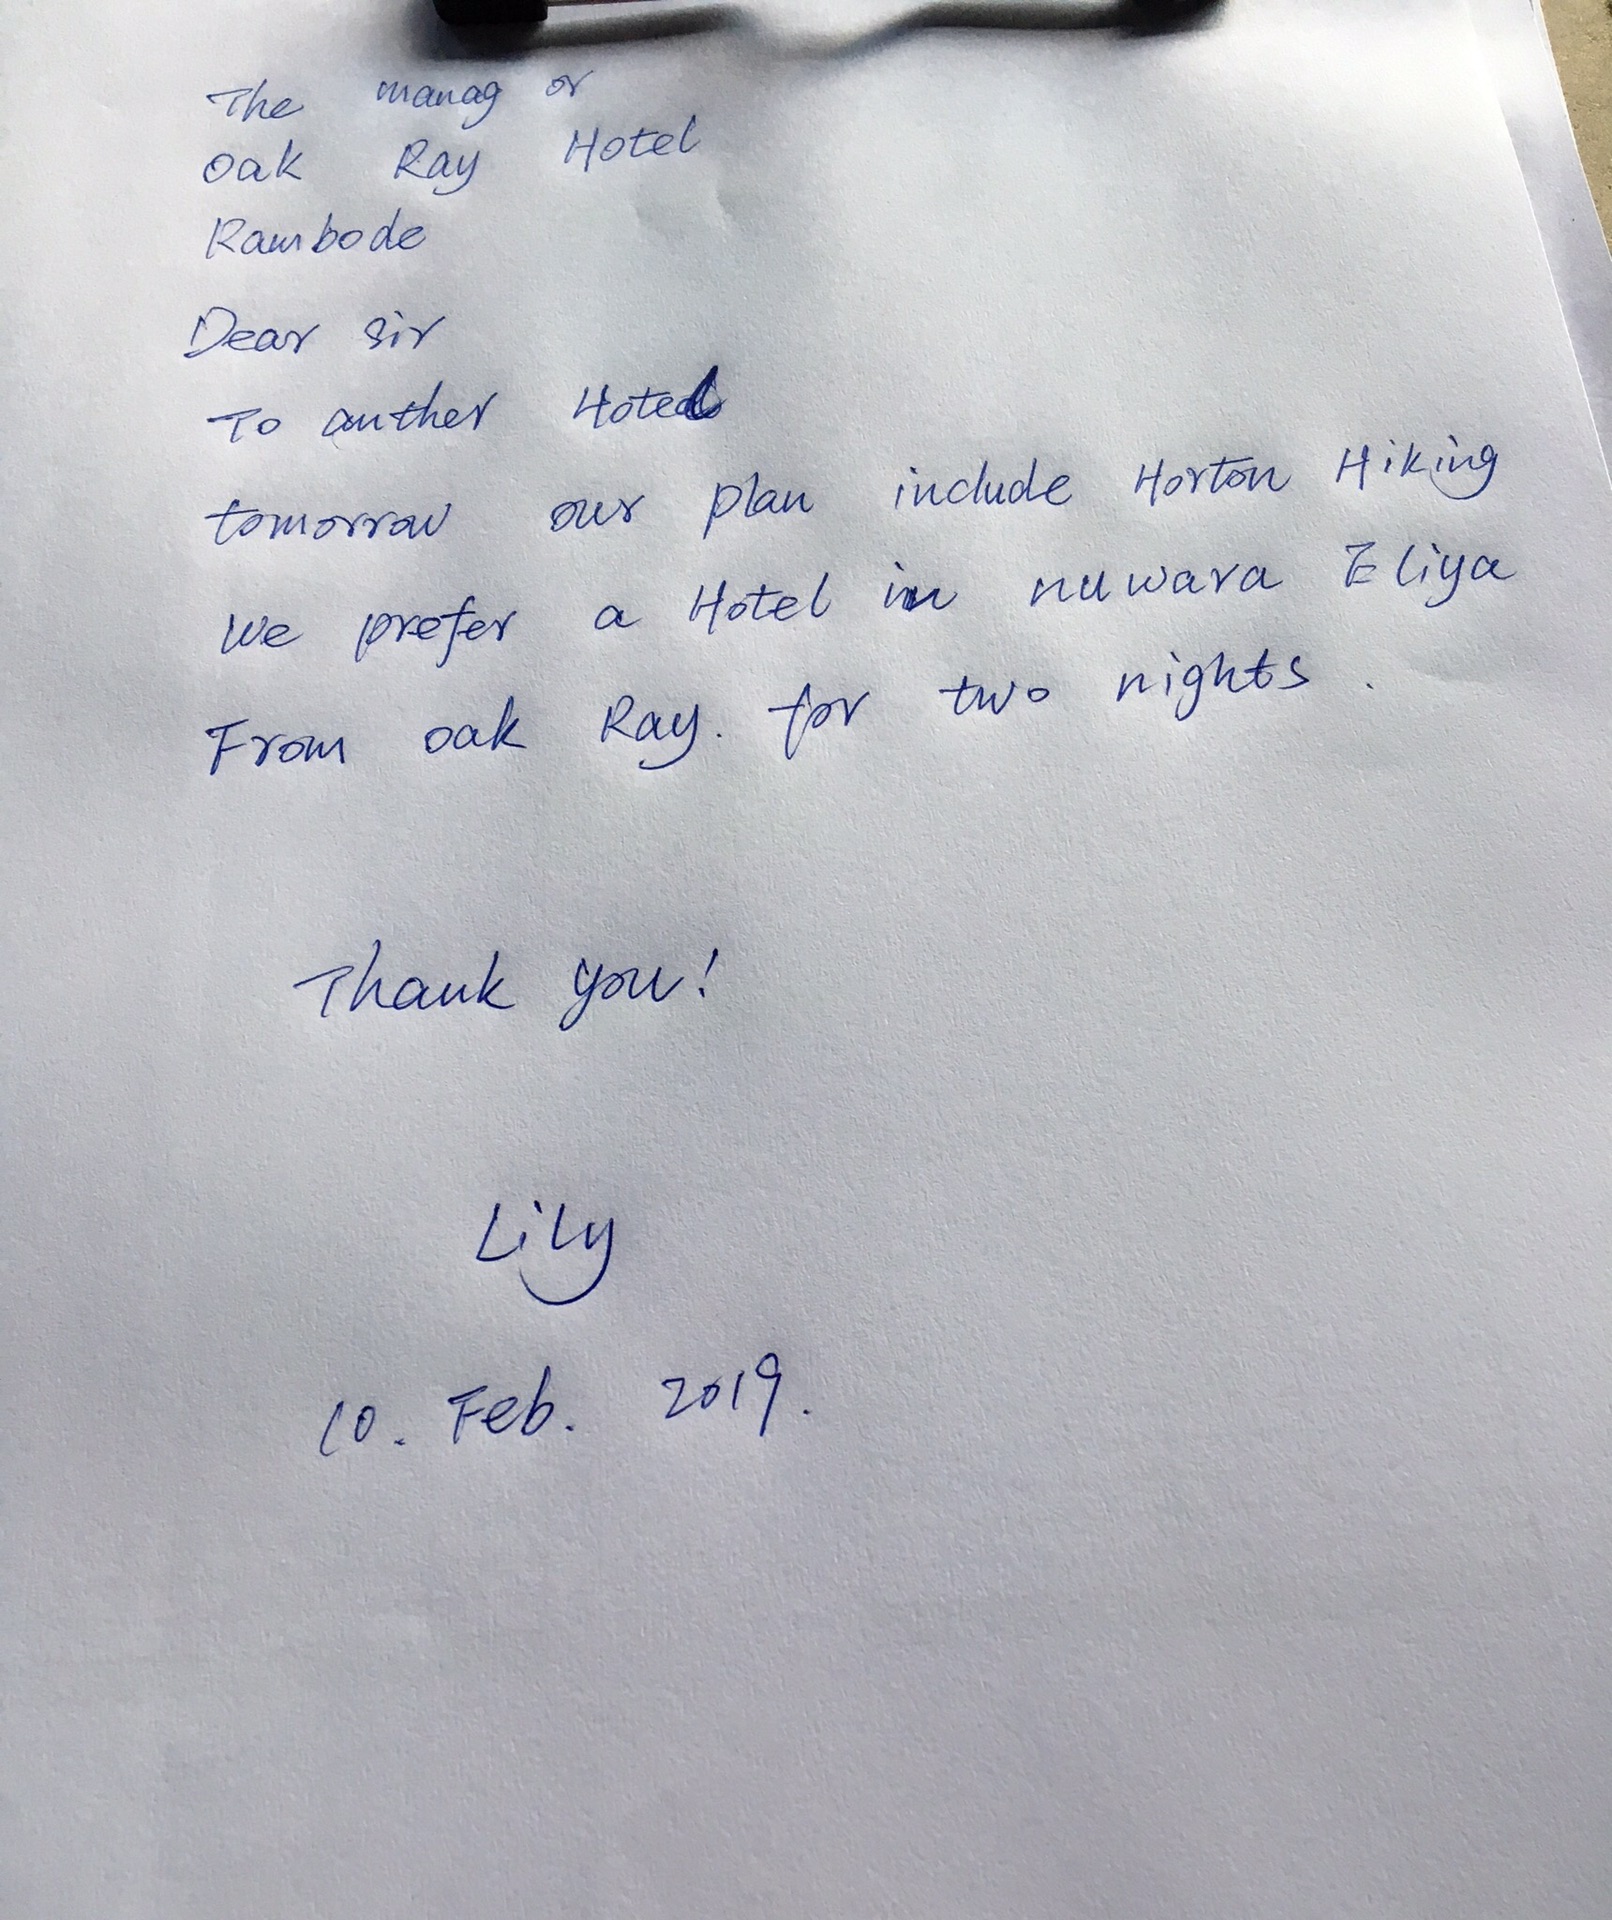 The manag or
oak Ray Hotel
Rambode
Dear sir
To anther Hotel
tomorrow our plan include Horton Hiking
We prefer a Hotel in nuwara Eliya
From oak Ray. for two nights.
Thank you!
Lily
10. Feb. 2019.